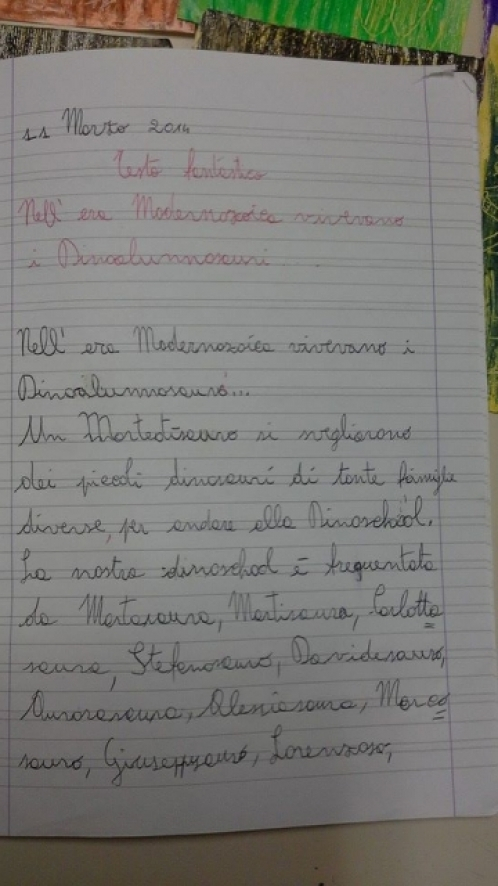 11 Marzo 2014
Testo fantastico
Nell' era Modernozoica vivevano
i Dinoalunnosauri
Nell' era Modernozoica vivevano i
Dinoalunnosauro...
Un Martedisauro si svegliarono
dei piccoli dinosauri di tante famiglie
diverse, per andare alla Dinoschool.
La nostra dinoschool è frequentata
da Martasaura, Martisaura, Carlotta
saura, Stefanosauro, Davidesauro,
Aurorasaura, Alessiasaura, Marco
sauro, Giuseppysauro, Lorenzoso,